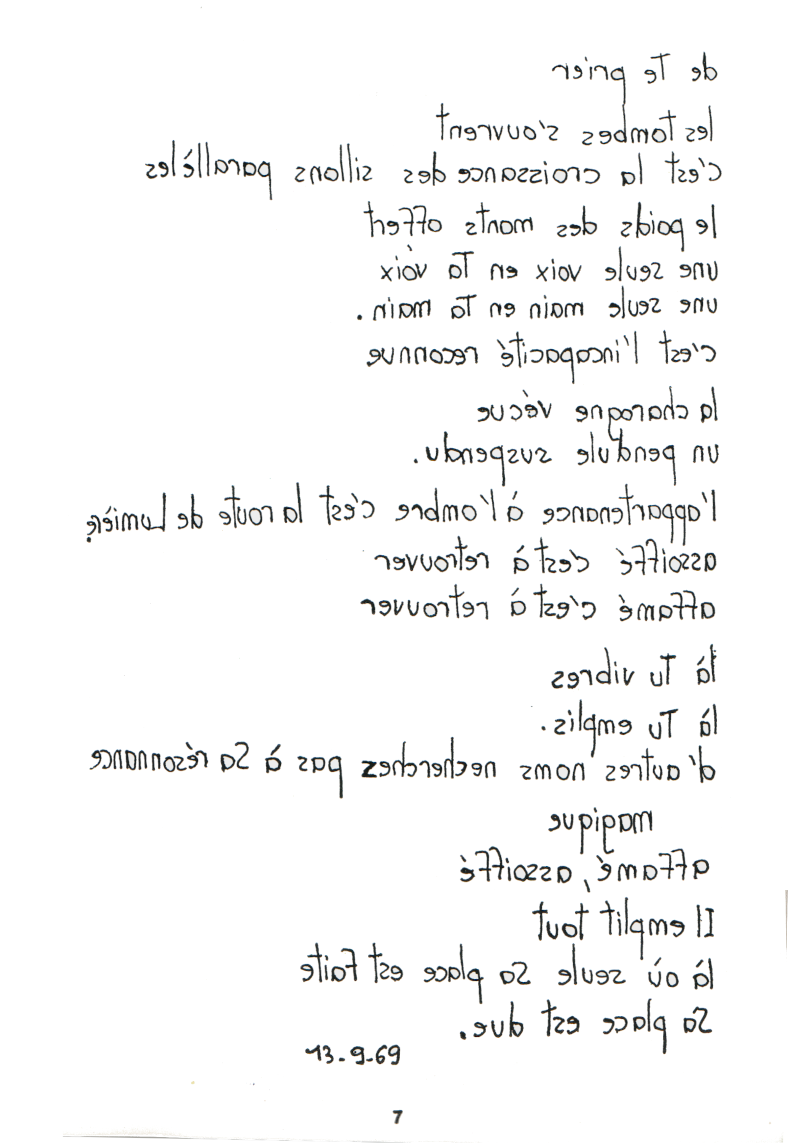 de Te prier
les tombes s'ouvrent
c'est la croissance des sillons parallèles
le poids des morts offert
une seule voix en Ta voix
une seule main en Ta main.
c'est l'incapacité reconnue
la charogne vécue
un pendule suspendu.
l'appartenance à l'ombre c'est la route de Lumière,
assoiffé c'est à retrouver
affamé c'est à retrouver
là Tu vibres
là Tu emplis.
d'autres noms necherchez pas à Sa résonnance
magique
affamé, assoiffé
Il emplit tout
là où seule Sa place est faite
Sa place est due.
13-9-69
7